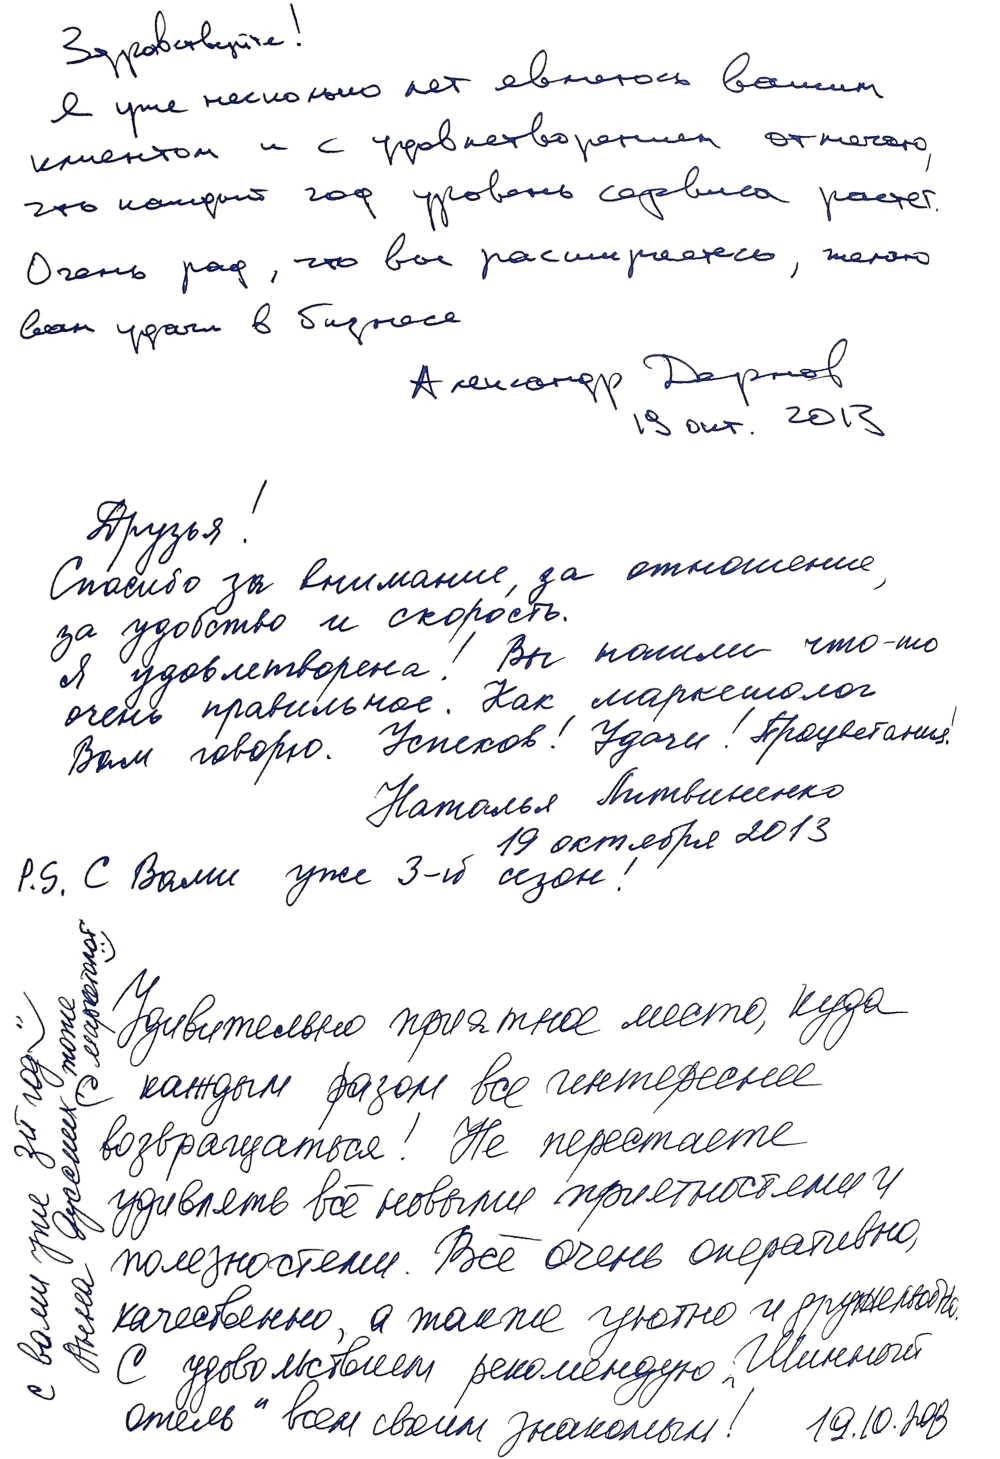 Здравствуйте!
Я уже несколько лет являюсь вашим
клиентом и с удовлетворением отмечаю,
что каждый год уровень сервиса растет.
Очень рад, что вы расширяетесь, желаю
вам удачи в бизнесе
Александр
19 окт. 2013
Друзья!
Спасибо за внимание, за отношение,
за удобство и скорость.
Я удовлетворена! Вы поняли что-то
очень правильное. Как маркетолог
Вам говорю. Успехов! Удачи! Процветания!
Наталья Литвиненко
19 октября 2013
P.S. С Вами уже 3-й сезон!
Удивительно приятное место, куда
каждым разом все интереснее
возвращаться! Не перестаете
удивлять всё новыми приятностями и
полезностями. Всё очень оперативно,
качественно, а также уютно и дружелюбно.
С удовольствием рекомендую „Шинный
отель“ всем своим знакомым! 19.10.2013
с вами уже 3й год
Анна тоже
маркетолог